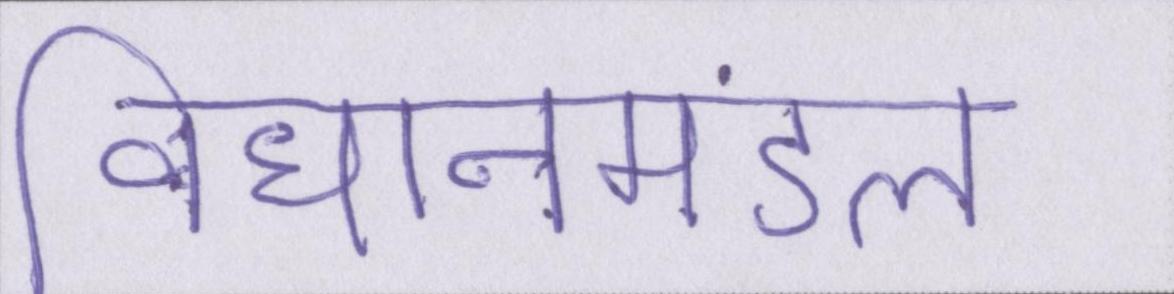 विधानमंडल